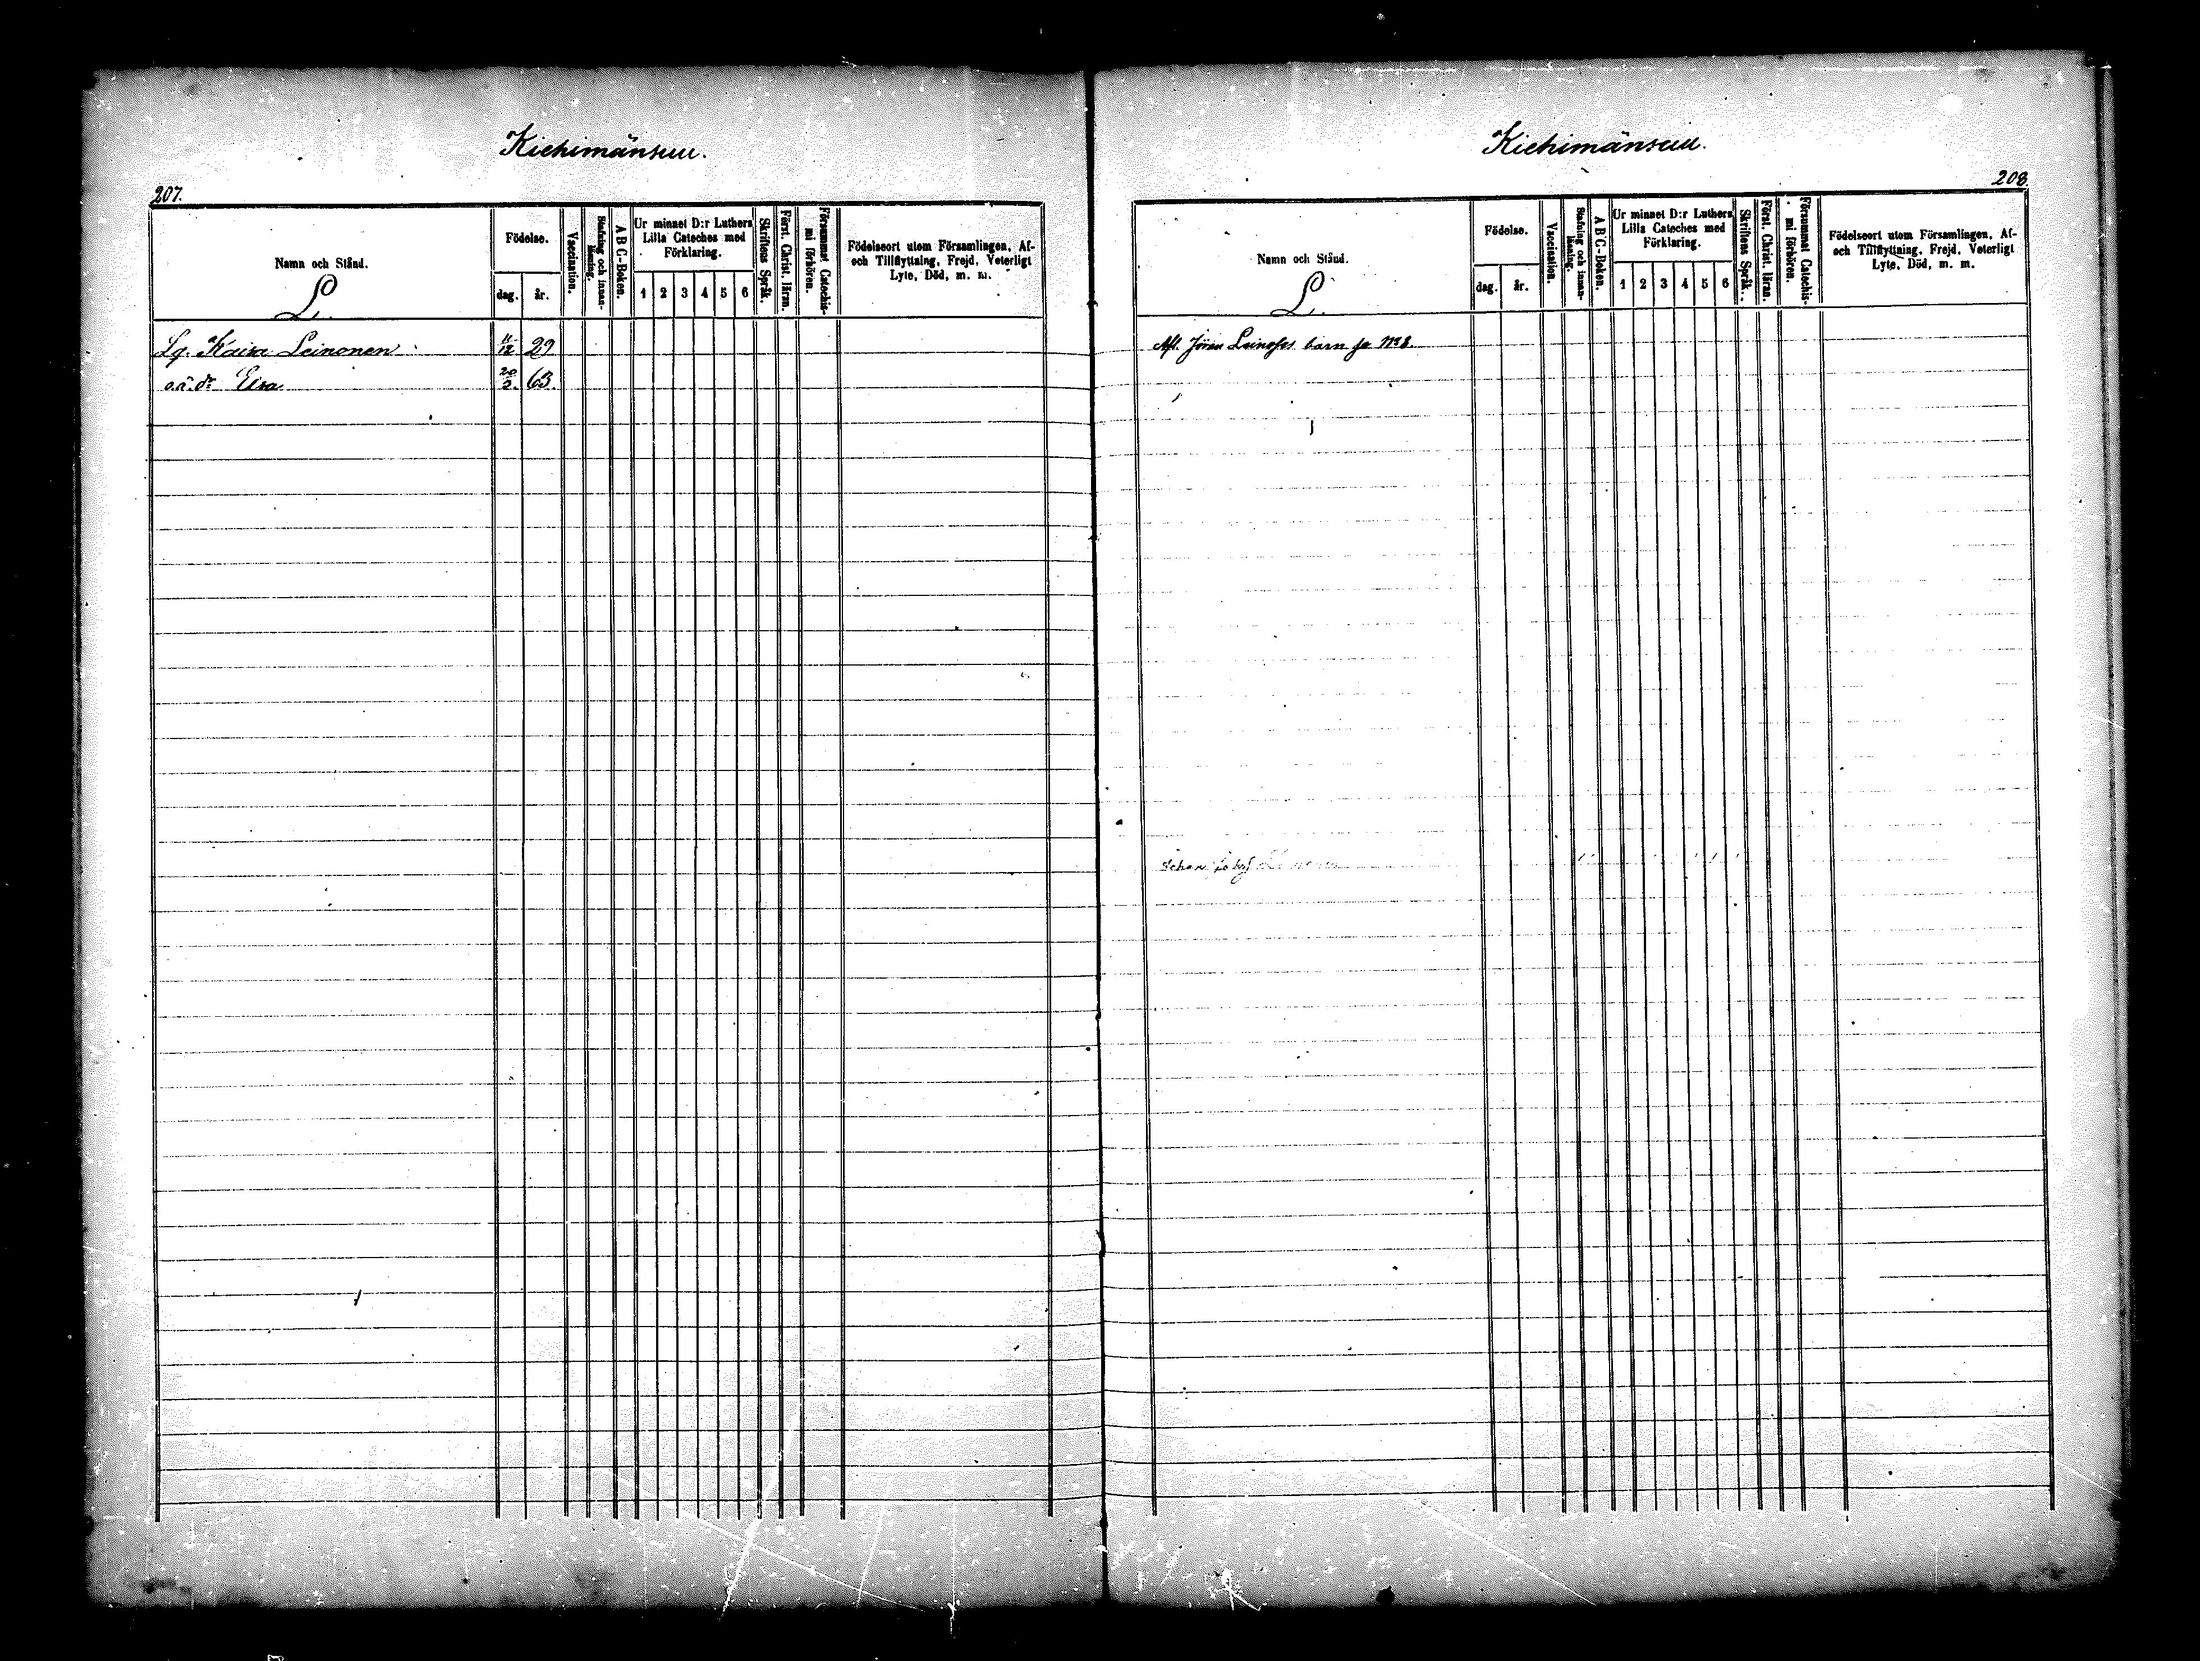 Kiehimänsuu.
207.
Namn och Stånd.
L.
Födelse.
dag.
år.
Vaccination.
Stafning och innan-
läsning.
A B C-Boken.
Ur minnet D:r Luthers
Lilla Cateches med
Förklaring.
1 2 3 4 5 6
Skriftens Språk.
Först. Christ. läran.
Försummat Catechis-
mi förhören.
Födelseort utom Församlingen, Af-
och Tillflyttning, Frejd, Veterligt
Lyte, Död, m. m.
Lg. Kaisa Leinonen 11/12 29
o.ä. dr Elsa 20/2. 63
Kiehimänsuu.
208.
Namn och Stånd.
L.
Födelse.
dag.
år.
Vaccination.
Stafning och innan-
läsning.
A B C-Boken.
Ur minnet D:r Luthers
Lilla Cateches med
Förklaring.
1 2 3 4 5 6
Skriftens Språk.
Först. Christ. läran.
Försummat Catechis-
mi förhören.
Födelseort utom Församlingen, Af-
och Tillflyttning, Frejd, Veterligt
Lyte, Död, m. m.
Afl. Jöran barn No 8.